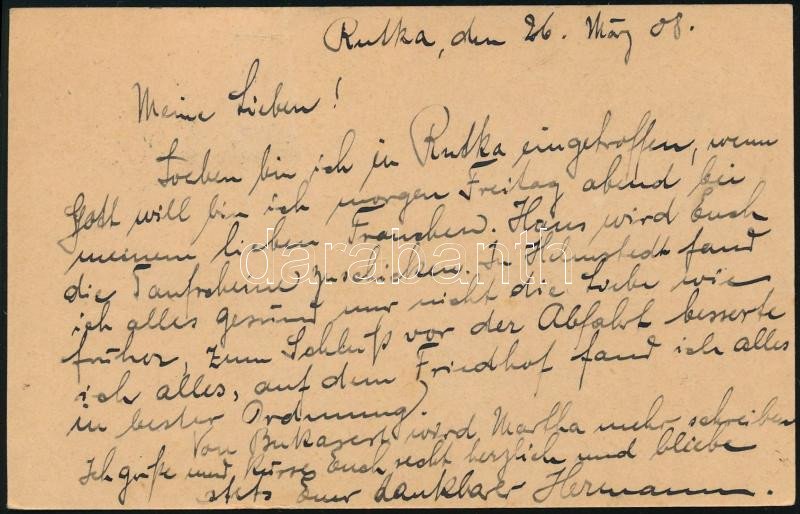 Rutka, den 26. März 08.
Meine Lieben!
Soeben bin ich in Rutka eingetroffen, wenn
Gott will bin ich morgen Freitag abend bei
meinem lieben Frauchen. Hans wird Euch
die Taufscheine zuschicken. In Helmstedt fand
ich alles gesund nur nicht die Liebe wie
früher, zum Schluß vor der Abfahrt besserte
ich alles, auf dem Friedhof fand ich alles
in bester Ordnung.
Von Bukarest wird Martha mehr schreiben
Ich grüße und küsse Euch recht herzlich und bleibe
stets Euer dankbarer Hermann.
darabanth